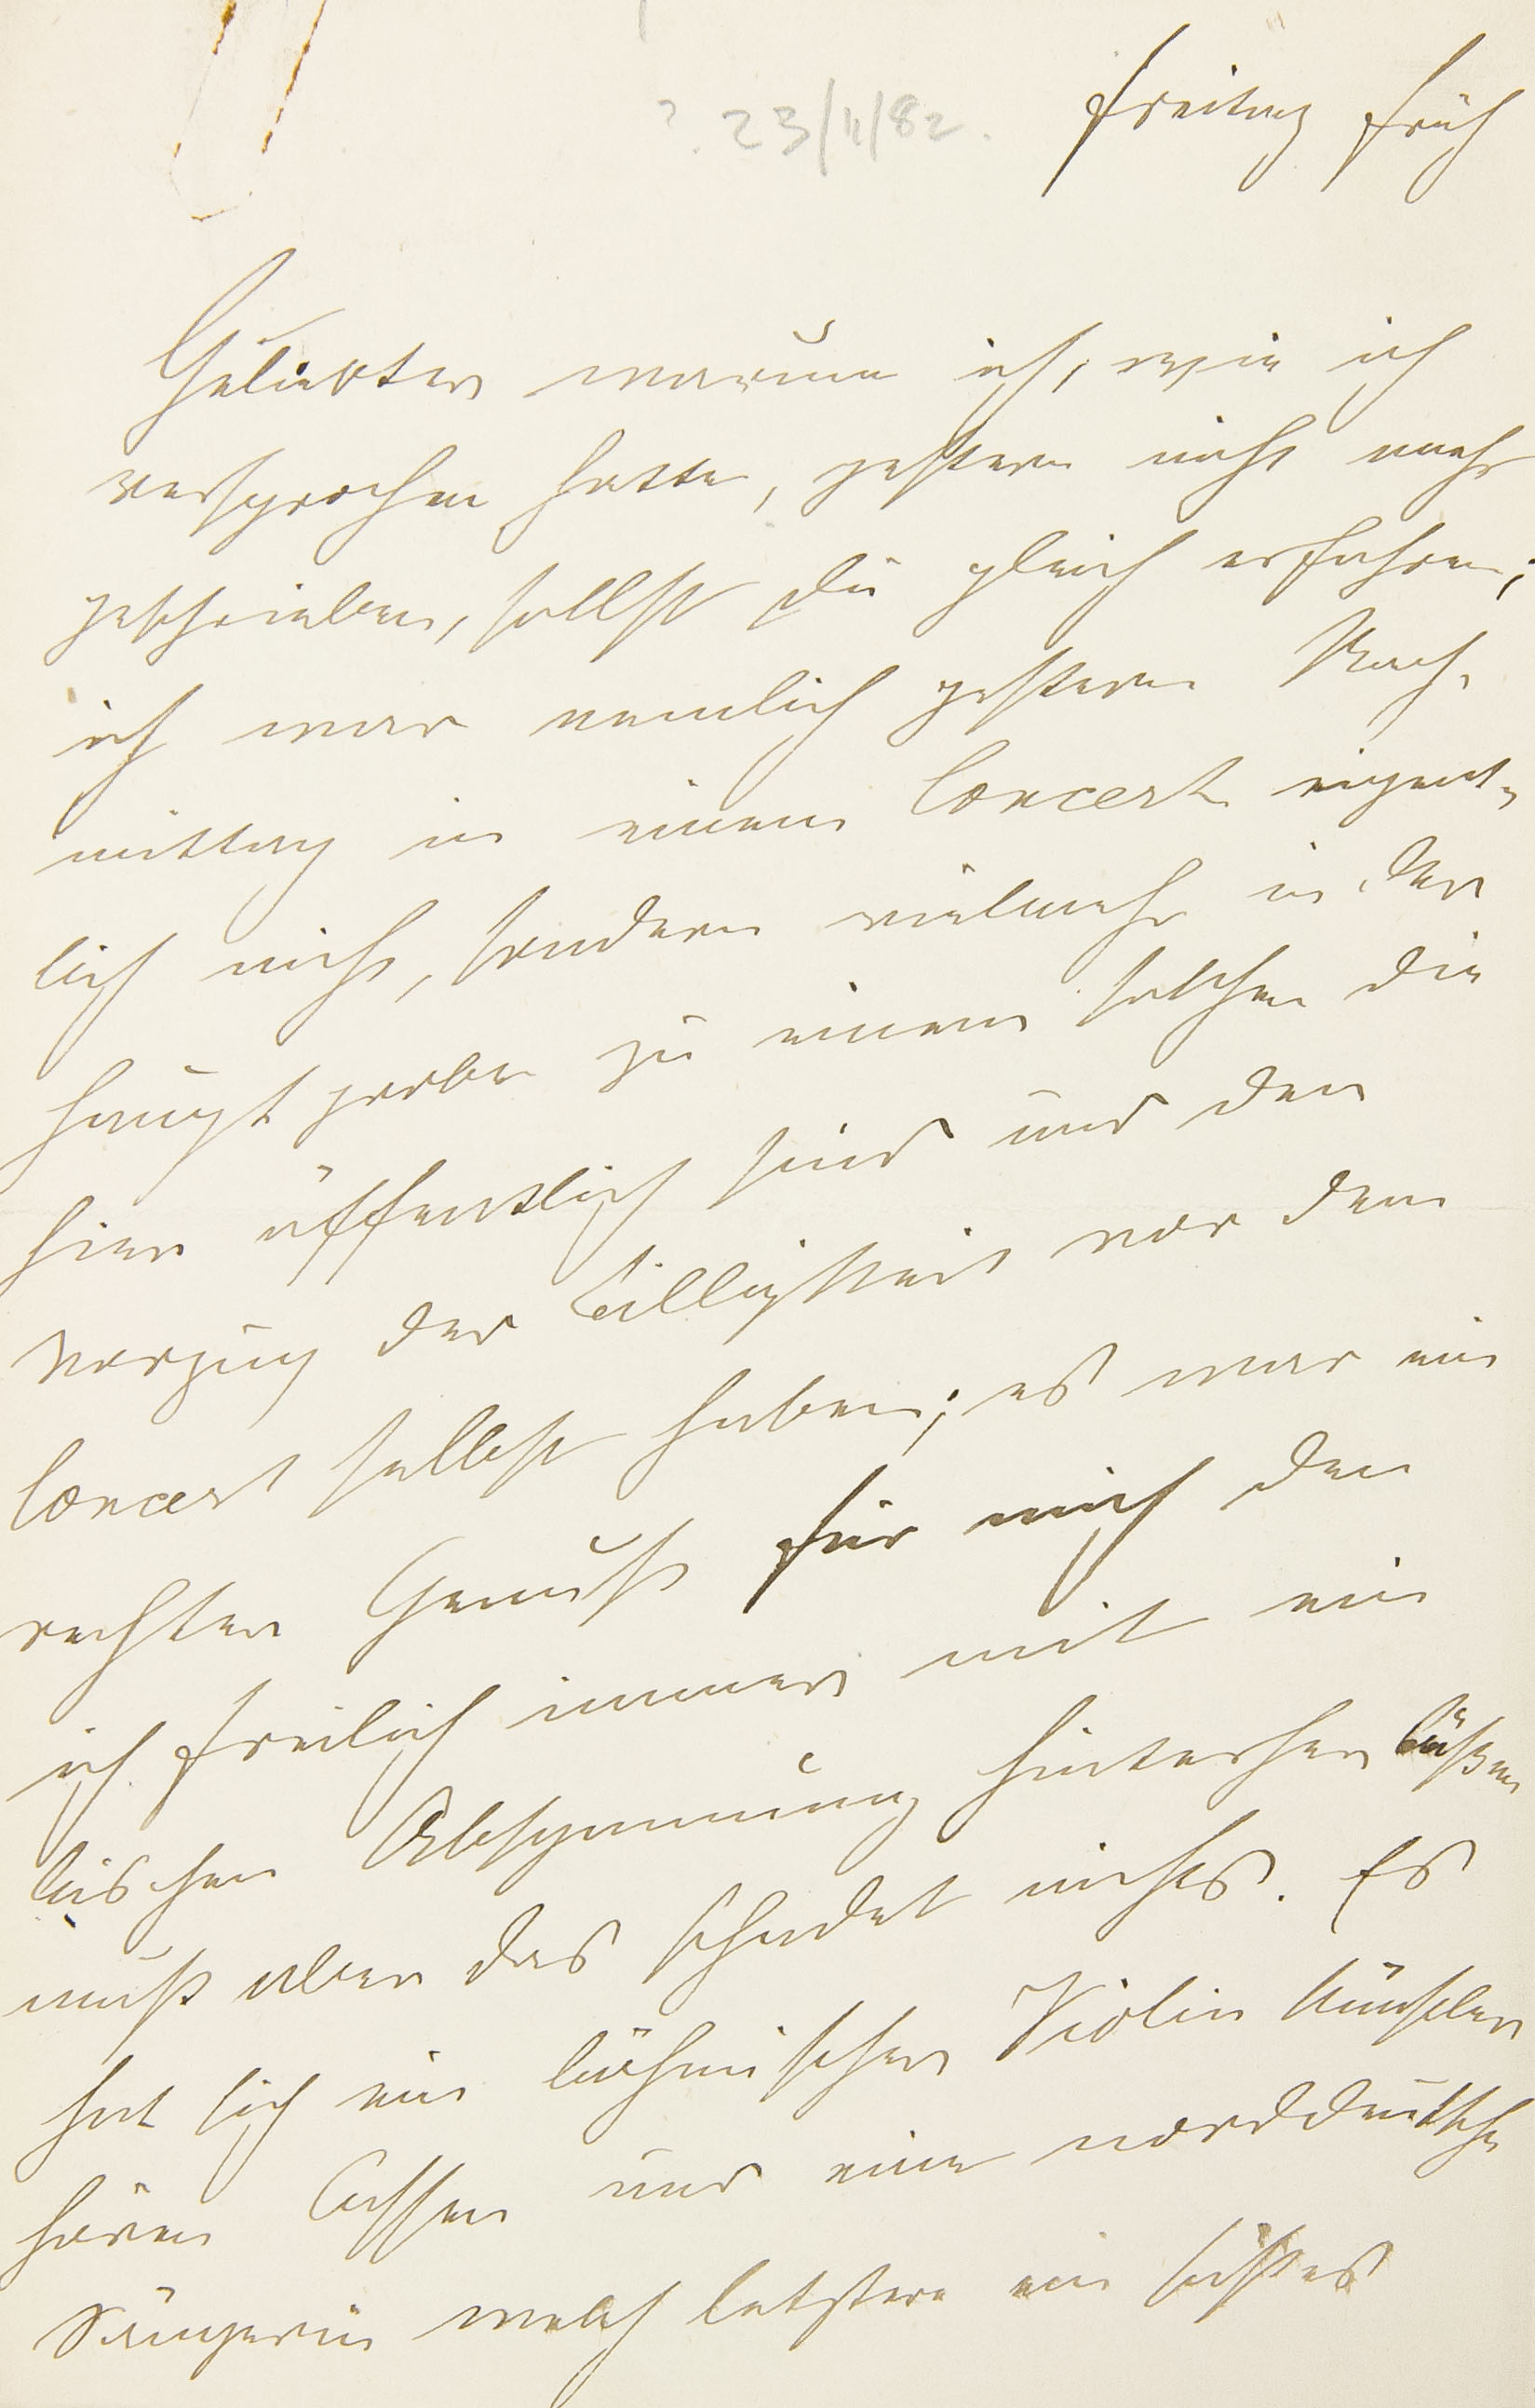 ? 23/11/82.
Freitag früh
Geliebter warum ich, wie ich
versprochen hatte, gestern nicht mehr
geschrieben, sollst Du gleich erfahren;
ich war nemlich gestern Nach-
mittag in einem Concert eigent-
lich nicht, sondern vielmehr in der
Hauptprobe zu einem solchen die
hier öffentlich sind und den
Vorzug der Billigkeit vor dem
Concert selbst haben; es war ein
rechter Genuß für mich den
ich freilich immer mit ein
bischen Abspannung hinterher büßen
muß aber das schadet nichts. Es
hat sich ein böhmischer Violin Künstler
hören lassen und eine norddeutsche
Sängerin welch letztere ein süßes